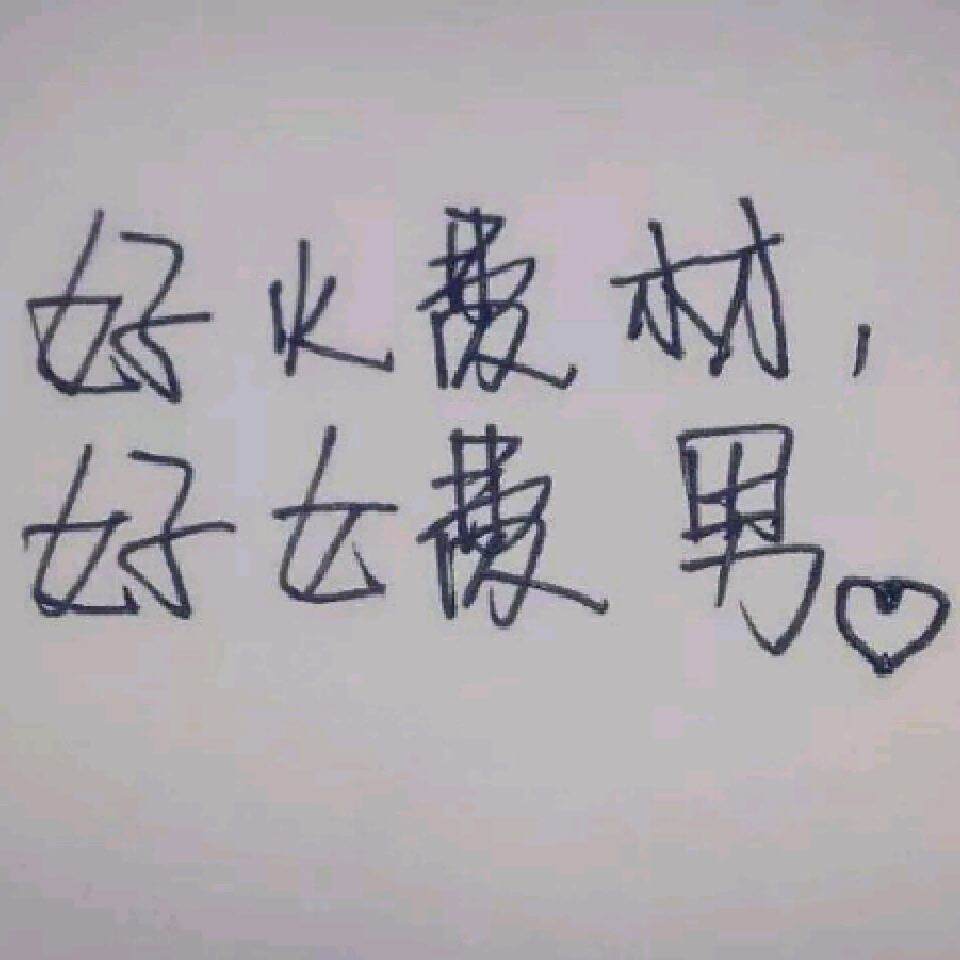 好火费材，
好女费男♡